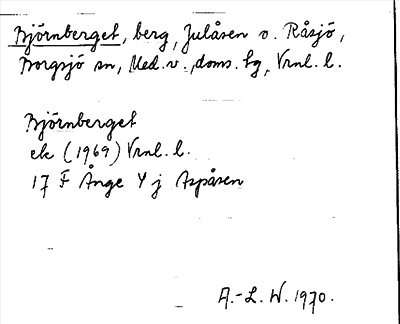 Björnberget, berg, Julåsen o. Råsjö,
Borgsjö sn, Med. v., doms. tg, Vrnl. l.
Björnberget
ek (1969) Vrnl. l.
17 F Ånge Y j Aspåsen
A.-L. W. 1970.